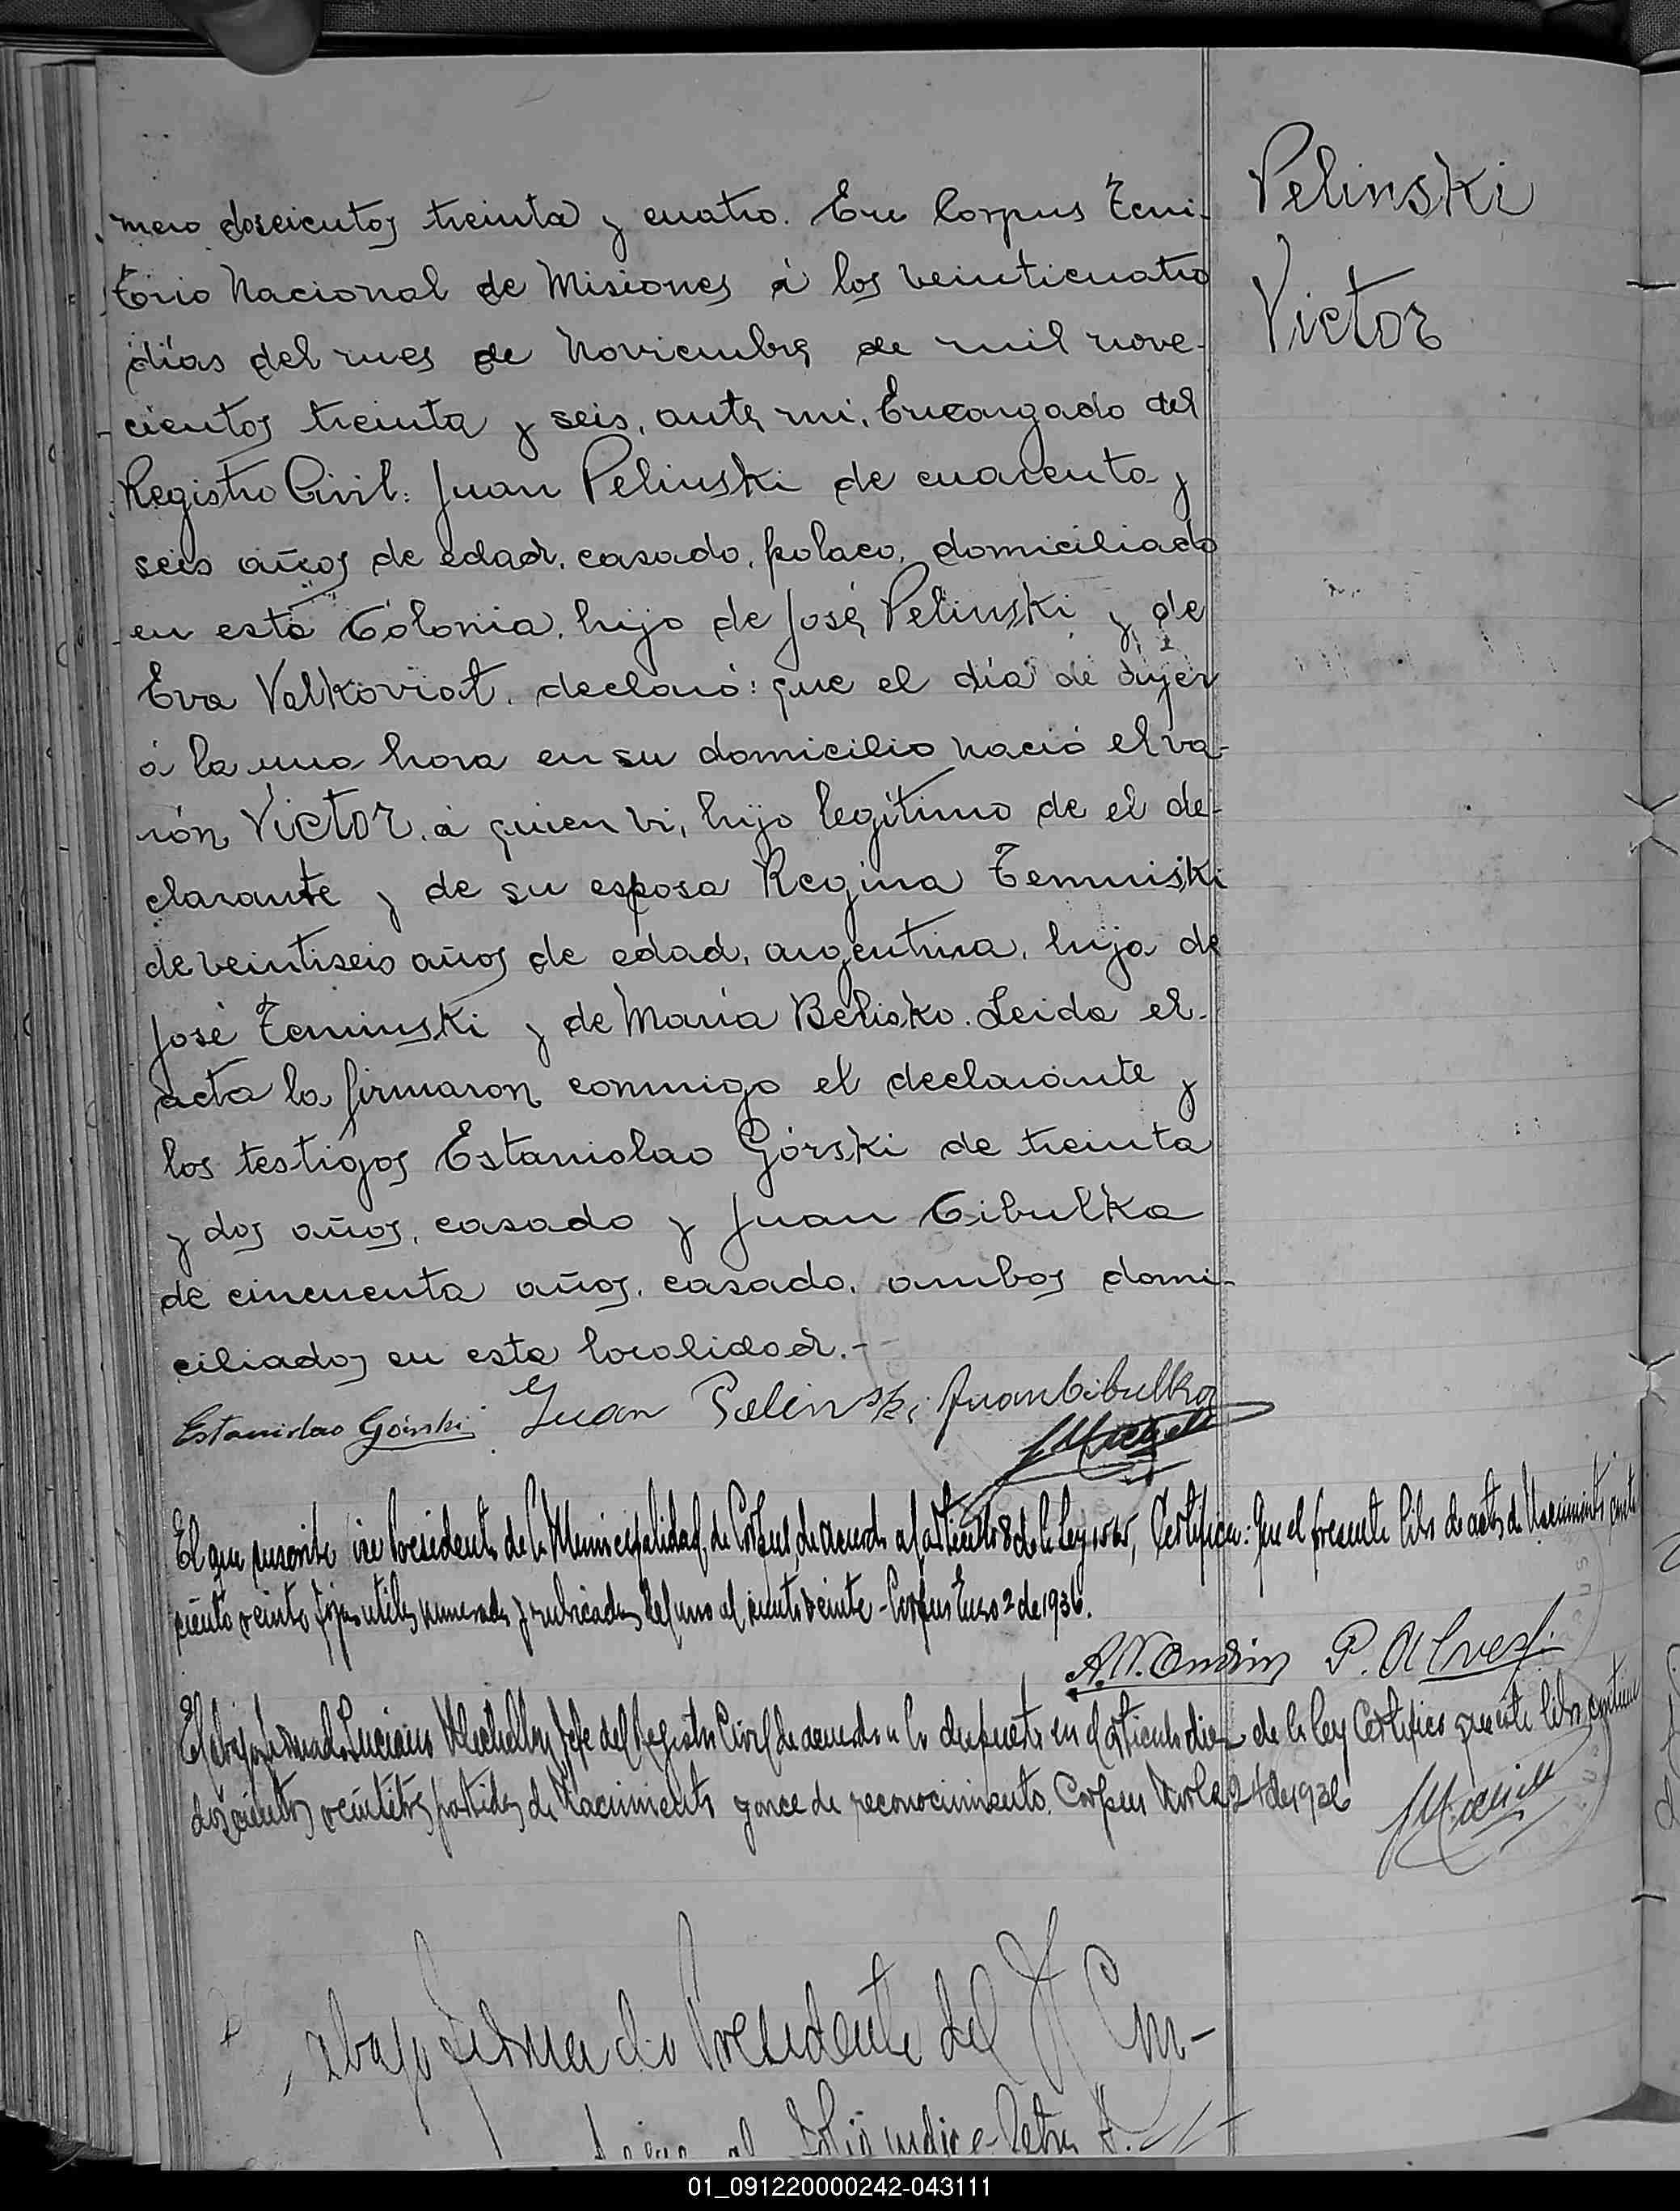 Pelinski
Victor
mero doscientos treinta y cuatro. En Corpus Terri-
torio Nacional de Misiones á los veinticuatro
días del mes de Noviembre de mil nove-
cientos treinta y seis, ante mi, Encargado del
Registro Civil: Juan Pelinski de cuarenta y
seis años de edad, casado, polaco, domiciliado
en esta Colonia, hijo de José Pelinski y de
Eva Valkoviat, declaró: que el día de ayer
á la una hora en su domicilio nació el va-
rón Victor, a quien vi, hijo legítimo de el de-
clarante y de su esposa Regina Temniski
de veintiseis años de edad, argentina, hija de
José Teminski y de María Belisko. Leida el
acta la firmaron conmigo el declarante y
los testigos Estanislao Górski de treinta
y dos años, casado y Juan Cibulka
de cincuenta años, casado, ambos domi-
ciliados en esta localidad.-
Estanislao Górski Juan Pelinski Juan Cibulka
El que suscribe Presidente de la Municipalidad de Corpus, de acuerdo al articulo 8 de la ley 1565, Certifica: Que el presente libro de actas de Nacimientos
ciento veinte fojas utiles numeradas y rubricadas del uno al ciento veinte - Corpus Enero 2 de 1936.
P. Alves
El abajo firmado Luciano Jefe del Registro Civil de acuerdo a lo dispuesto en el articulo diez de la ley Certifico que este libro contiene
doscientos veintitres partidas de Nacimiento y once de reconocimiento. Corpus 24 de 1936
abajo firmado Presidente del H Con-
al folio indice - Letra A.
01_091220000242-043111